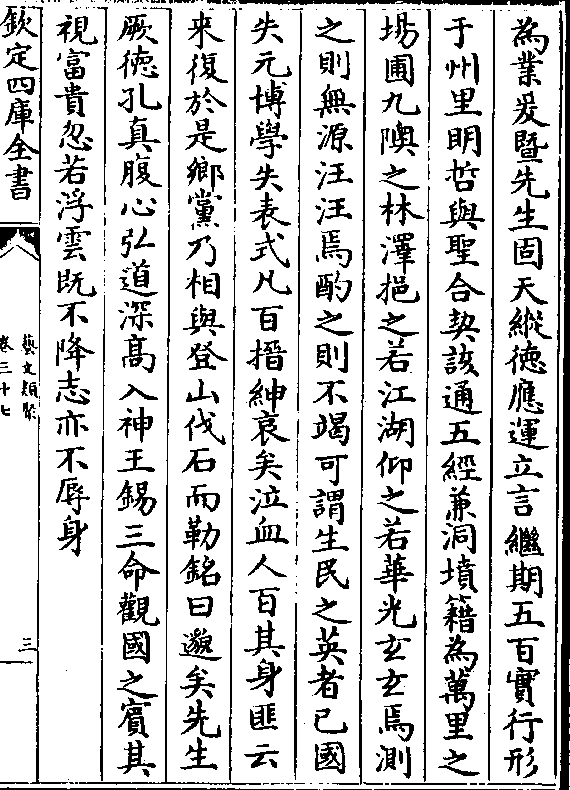 為業爰暨先生固天縱徳應運立言繼期五百實行形
于州里明哲與聖合契該通五經兼洞墳籍為萬里之
場圃九隩之林澤挹之若江湖仰之若華光玄玄焉測
之則無源汪汪焉酌之則不竭可謂生民之英者已國
失元博學失表式凡百搢紳哀矣泣血人百其身匪云
来復於是鄉黨乃相與登山伐石而勒銘曰邈矣先生
厥徳孔真腹心弘道深髙入神王錫三命觀國之賓其
視富貴忽若浮雲既不降志亦不辱身
欽定四庫全書
藝文類聚
卷三十七
三